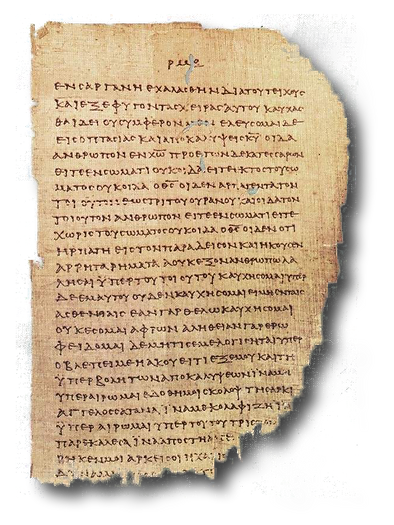 ΕΝ ϹΑΡΓΑΝΗ ΕΧΑΛΑϹΘΗΝ ΔΙΑ ΤΟΥ ΤΕΙΧΟΥϹ
ΚΑΙ ΕΞΕΦΥΓΟΝ ΤΑϹ ΧΕΙΡΑϹ ΑΥΤΟΥ ΚΑΥΧΑϹ
ΘΑΙ ΔΕΙ ΟΥ ϹΥΜΦΕΡΟΝ ΜΕΝ ΕΛΕΥϹΟΜΑΙ ΔΕ
ΕΙϹ ΟΠΤΑϹΙΑϹ ΚΑΙ ΑΠΟΚΑΛΥΨΕΙϹ Κ̅Υ̅ ΟΙΔΑ
ΑΝΘΡΩΠΟΝ ΕΝ Χ̅Ω̅ ΠΡΟ ΕΤΩΝ ΔΕΚΑΤΕϹϹΑΡΩΝ
ΕΙΤΕ ΕΝ ϹΩΜΑΤΙ ΟΥΚ ΟΙΔΑ ΕΙΤΕ ΕΚΤΟϹ ΤΟΥ ϹΩ
ΜΑΤΟϹ ΟΥΚ ΟΙΔΑ Ο Θ̅Ϲ̅ ΟΙΔΕΝ ΑΡΠΑΓΕΝΤΑ ΤΟΝ
ΤΟΙΟΥΤΟΝ ΕΩϹ ΤΡΙΤΟΥ ΟΥΡΑΝΟΥ ΚΑΙ ΟΙΔΑ ΤΟΝ
ΤΟΙΟΥΤΟΝ ΑΝΘΡΩΠΟΝ ΕΙΤΕ ΕΝ ϹΩΜΑΤΙ ΕΙΤΕ
ΧΩΡΙϹ ΤΟΥ ϹΩΜΑΤΟϹ ΟΥΚ ΟΙΔΑ Ο Θ̅Ϲ̅ ΟΙΔΕΝ ΟΤΙ
ΗΡΠΑΓΗ ΕΙϹ ΤΟΝ ΠΑΡΑΔΕΙϹΟΝ ΚΑΙ ΗΚΟΥϹΕΝ
ΑΡΡΗΤΑ ΡΗΜΑΤΑ Α ΟΥΚ ΕΞΟΝ ΑΝΘΡΩΠΩ ΛΑ
ΛΗϹΑΙ ΥΠΕΡ ΤΟΥ ΤΟΙΟΥΤΟΥ ΚΑΥΧΗϹΟΜΑΙ ΥΠΕΡ
ΔΕ ΕΜΑΥΤΟΥ ΟΥΔΕΝ ΚΑΥΧΗϹΟΜΑΙ ΕΙ ΜΗ ΕΝ ΤΑΙϹ
ΑϹΘΕΝΕΙΑΙϹ ΕΑΝ ΓΑΡ ΘΕΛΩ ΚΑΥΧΗϹΟΜΑΙ
ΟΥΚ ΕϹΟΜΑΙ ΑΦΡΩΝ ΑΛΗΘΕΙΑΝ ΓΑΡ ΕΡΩ
ΦΕΙΔΟΜΑΙ ΔΕ ΜΗ ΤΙϹ ΕΜΕ ΛΟΓΙϹΗΤΑΙ ΥΠΕΡ
Ο ΒΛΕΠΕΙ ΜΕ Η ΑΚΟΥΕΙ ΤΙ ΕΞ ΕΜΟΥ ΚΑΙ ΤΗ
ΥΠΕΡΒΟΛΗ ΤΩΝ ΑΠΟΚΑΛΥΨΕΩΝ ΙΝΑ ΜΗ
ΥΠΕΡΑΙΡΩΜΑΙ ΕΔΟΘΗ ΜΟΙ ϹΚΟΛΟΨ ΤΗ ϹΑΡΚΙ
ΑΓΓΕΛΟϹ ϹΑΤΑΝΑ ΙΝΑ ΜΕ ΚΟΛΑΦΙΖΗ
ΥΠΕΡΑΙΡΩΜΑΙ ΥΠΕΡ ΤΟΥΤΟΥ ΤΡΙϹ
ΠΑΡΕΚΑΛΕϹΑ ΙΝΑ ΑΠΟϹΤΗ
ΡΗΚΕΝ ΜΟΙ ΑΡΚΕΙ ϹΟΙ Η